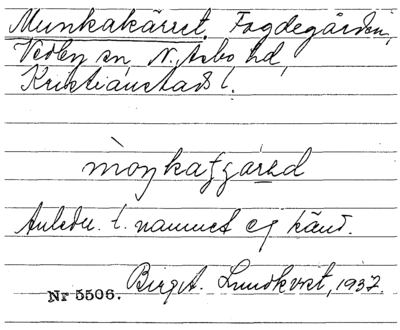 Munkakärret, Fogdegården,
Vedby sn, N. Åsbo hd,
Kristianstads l.
Anledn. t. namnet ej känd.
Birgit Lundkvist, 1937.
Nr 5506.